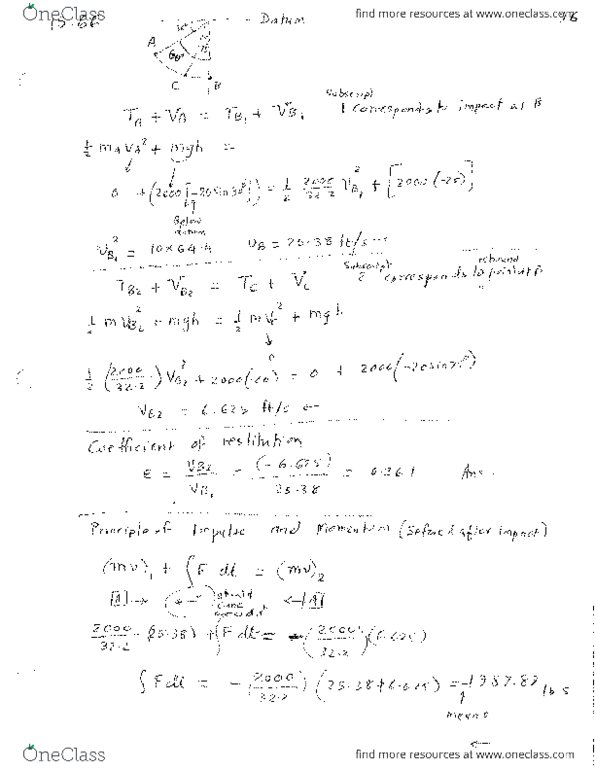 OneClass
find more resources at www.oneclass.com
Datum
A
60°
C
B
Subscript
1 corresponds to impact at B
T_A + V_A = T_B1 + V_B1
½ m_A V_A² + mgh =
0 + (2000[-20 sin 30°]) = ½ 2000/32.2 V_B1² + [2000(-20)]
Below datum
V_B1² = 10×64.4 V_B = 25.38 ft/s
Subscript
rebound
corresponds to point
T_B2 + V_B2 = T_C + V_C
½ m V_B2² + mgh = ½ m V² + mgh
0
½ (2000/32.2) V_B2² + 2000(-20) = 0 + 2000(-20 sin
V_B2 = 6.625 ft/s ←
Coefficient of restitution
e = V_B2 / V_B1 = (-6.625) / 25.38 = 0.261 Ans.
Principle of Impulse and Momentum (Before & after impact)
(mv)₁ + ∫F dt = (mv)₂
should
2000/32.2 (25.38) + ∫F dt = -(2000/32.2)(6.625)
∫F dt = -(2000/32.2)(25.38 + 6.625) = -1987.82 lb s
means
←
OneClass
find more resources at www.oneclass.com